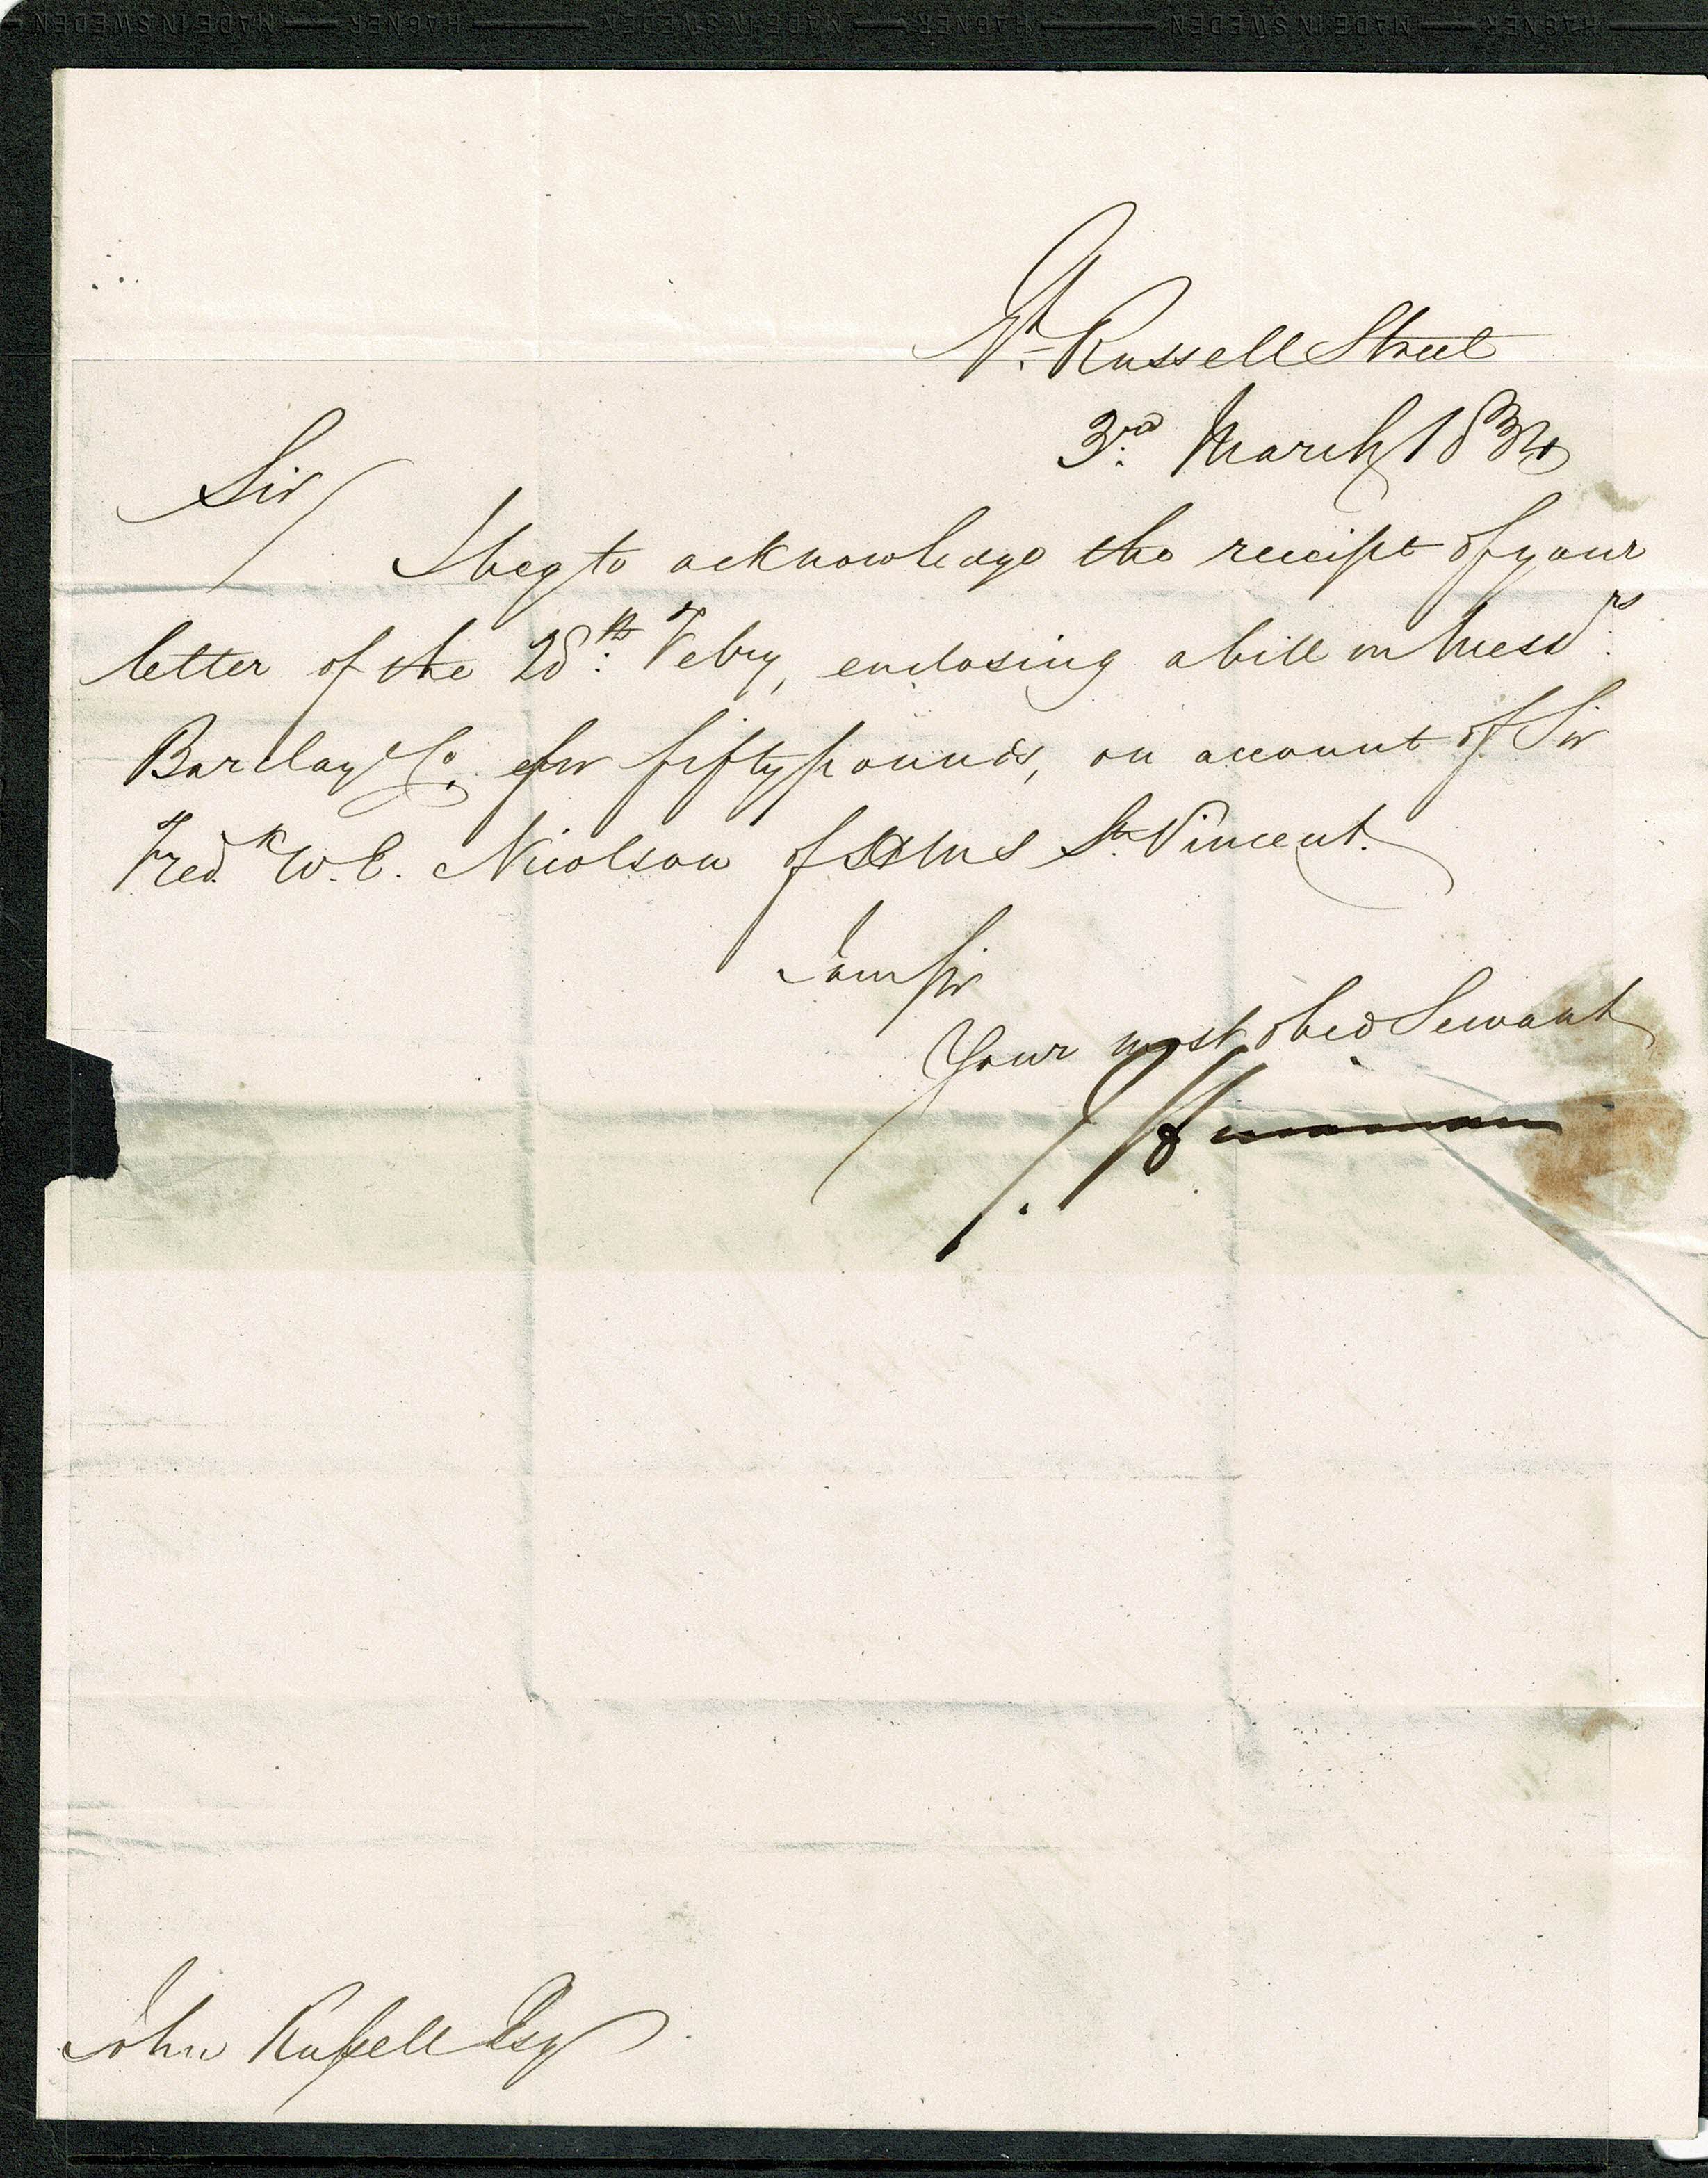 HAGNER — MADE IN SWEDEN — HAGNER — MADE IN SWEDEN — HAGNER — MADE IN SWEDEN — HAGNER — MADE IN SWEDEN
Gt. Russell Street
3rd. March 1834
Sir/
I beg to acknowledge the receipt of your
letter of the 28th. Feby, enclosing a bill on Messrs.
Barclay & Co. for fifty pounds, on account of Sir
Fredk W. E. Nicolson of HMS St. Vincent.
I am Sir
Your most obed Servant
John Russell Esq